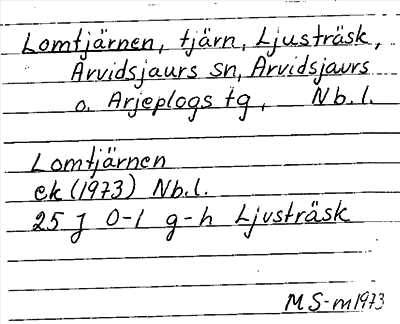 Lomtjärnen, tjärn, Ljusträsk,
Arvidsjaurs sn, Arvidsjaurs
o. Arjeplogs tg, Nb.l.
Lomtjärnen
ek (1973) Nb.l.
25 J 0-1 g-h Ljusträsk
MS-m1973